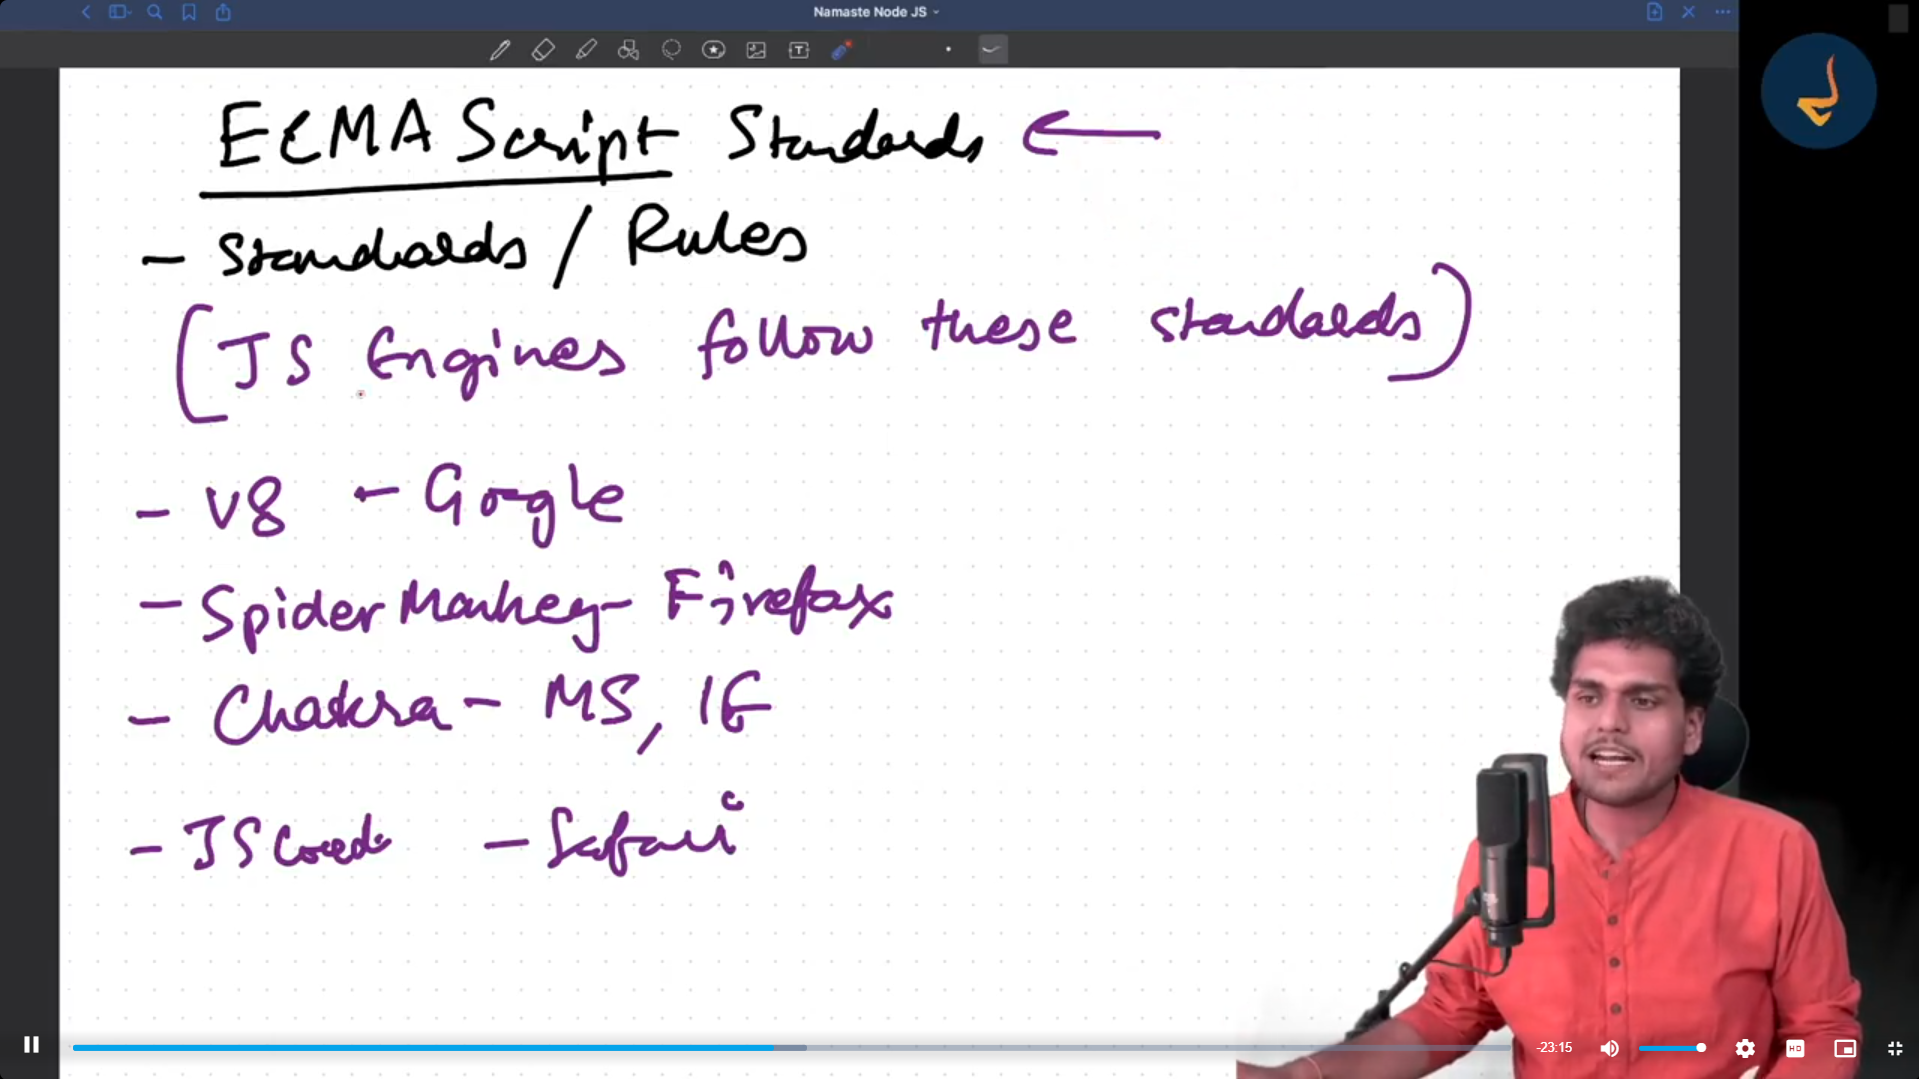 Namaste Node JS
ECMAScript Standards
- Standards / Rules
(JS Engines follow these standards)
- V8 - Google
- SpiderMonkey - Firefox
- Chakra - MS, IE
- JS - Safari
-23:15
HD